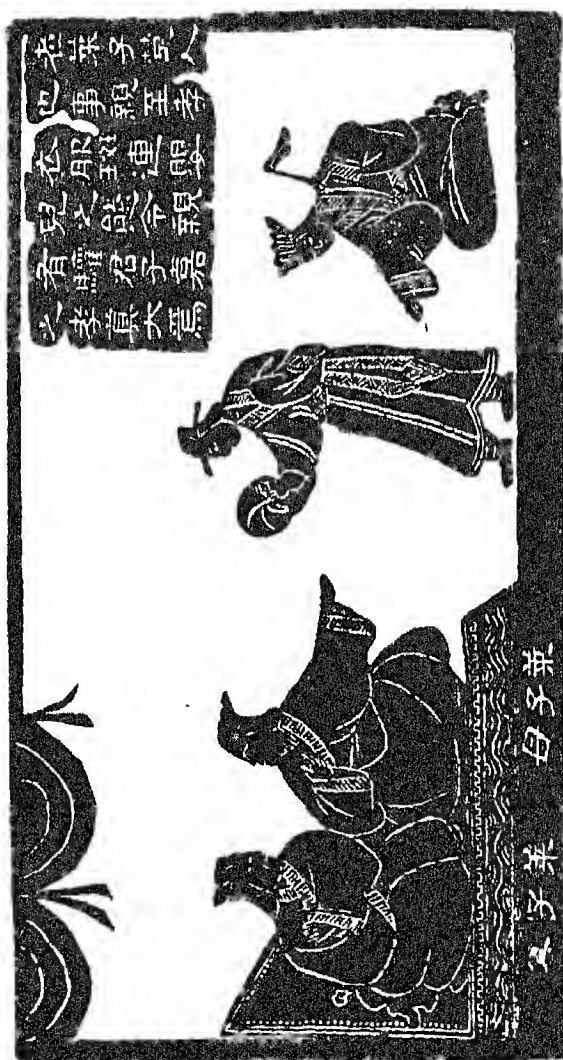 老萊子楚人
也事親至孝
衣服斑連嬰
兒之態令親
有驩君子嘉
之孝莫大焉
萊子母
萊子父